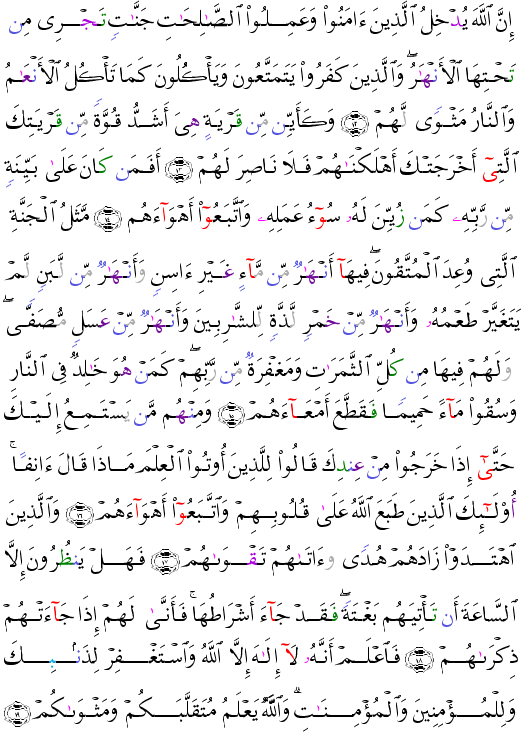 إِنَّ ٱللَّهَ يُدۡخِلُ ٱلَّذِينَ ءَامَنُواْ وَعَمِلُواْ ٱلصَّٰلِحَٰتِ جَنَّٰتٖ تَجۡرِي مِن
تَحۡتِهَا ٱلۡأَنۡهَٰرُۖ وَٱلَّذِينَ كَفَرُواْ يَتَمَتَّعُونَ وَيَأۡكُلُونَ كَمَا تَأۡكُلُ ٱلۡأَنۡعَٰمُ
وَٱلنَّارُ مَثۡوٗى لَّهُمۡ ١٢ وَكَأَيِّن مِّن قَرۡيَةٍ هِيَ أَشَدُّ قُوَّةٗ مِّن قَرۡيَتِكَ
ٱلَّتِيٓ أَخۡرَجَتۡكَ أَهۡلَكۡنَٰهُمۡ فَلَا نَاصِرَ لَهُمۡ ١٣ أَفَمَن كَانَ عَلَىٰ بَيِّنَةٖ
مِّن رَّبِّهِۦ كَمَن زُيِّنَ لَهُۥ سُوٓءُ عَمَلِهِۦ وَٱتَّبَعُوٓاْ أَهۡوَآءَهُم ١٤ مَّثَلُ ٱلۡجَنَّةِ
ٱلَّتِي وُعِدَ ٱلۡمُتَّقُونَۖ فِيهَآ أَنۡهَٰرٞ مِّن مَّآءٍ غَيۡرِ ءَاسِنٖ وَأَنۡهَٰرٞ مِّن لَّبَنٖ لَّمۡ
يَتَغَيَّرۡ طَعۡمُهُۥ وَأَنۡهَٰرٞ مِّنۡ خَمۡرٖ لَّذَّةٖ لِّلشَّٰرِبِينَ وَأَنۡهَٰرٞ مِّنۡ عَسَلٖ مُّصَفّٗىۖ
وَلَهُمۡ فِيهَا مِن كُلِّ ٱلثَّمَرَٰتِ وَمَغۡفِرَةٞ مِّن رَّبِّهِمۡۖ كَمَنۡ هُوَ خَٰلِدٞ فِي ٱلنَّارِ
وَسُقُواْ مَآءً حَمِيمٗا فَقَطَّعَ أَمۡعَآءَهُمۡ ١٥ وَمِنۡهُم مَّن يَسۡتَمِعُ إِلَيۡكَ
حَتَّىٰٓ إِذَا خَرَجُواْ مِنۡ عِندِكَ قَالُواْ لِلَّذِينَ أُوتُواْ ٱلۡعِلۡمَ مَاذَا قَالَ ءَانِفًاۚ
أُوْلَٰٓئِكَ ٱلَّذِينَ طَبَعَ ٱللَّهُ عَلَىٰ قُلُوبِهِمۡ وَٱتَّبَعُوٓاْ أَهۡوَآءَهُمۡ ١٦ وَٱلَّذِينَ
ٱهۡتَدَوۡاْ زَادَهُمۡ هُدٗى وَءَاتَىٰهُمۡ تَقۡوَىٰهُمۡ ١٧ فَهَلۡ يَنظُرُونَ إِلَّا
ٱلسَّاعَةَ أَن تَأۡتِيَهُم بَغۡتَةٗۖ فَقَدۡ جَآءَ أَشۡرَاطُهَاۚ فَأَنَّىٰ لَهُمۡ إِذَا جَآءَتۡهُمۡ
ذِكۡرَىٰهُمۡ ١٨ فَٱعۡلَمۡ أَنَّهُۥ لَآ إِلَٰهَ إِلَّا ٱللَّهُ وَٱسۡتَغۡفِرۡ لِذَنۢبِكَ
وَلِلۡمُؤۡمِنِينَ وَٱلۡمُؤۡمِنَٰتِۗ وَٱللَّهُ يَعۡلَمُ مُتَقَلَّبَكُمۡ وَمَثۡوَىٰكُمۡ ١٩